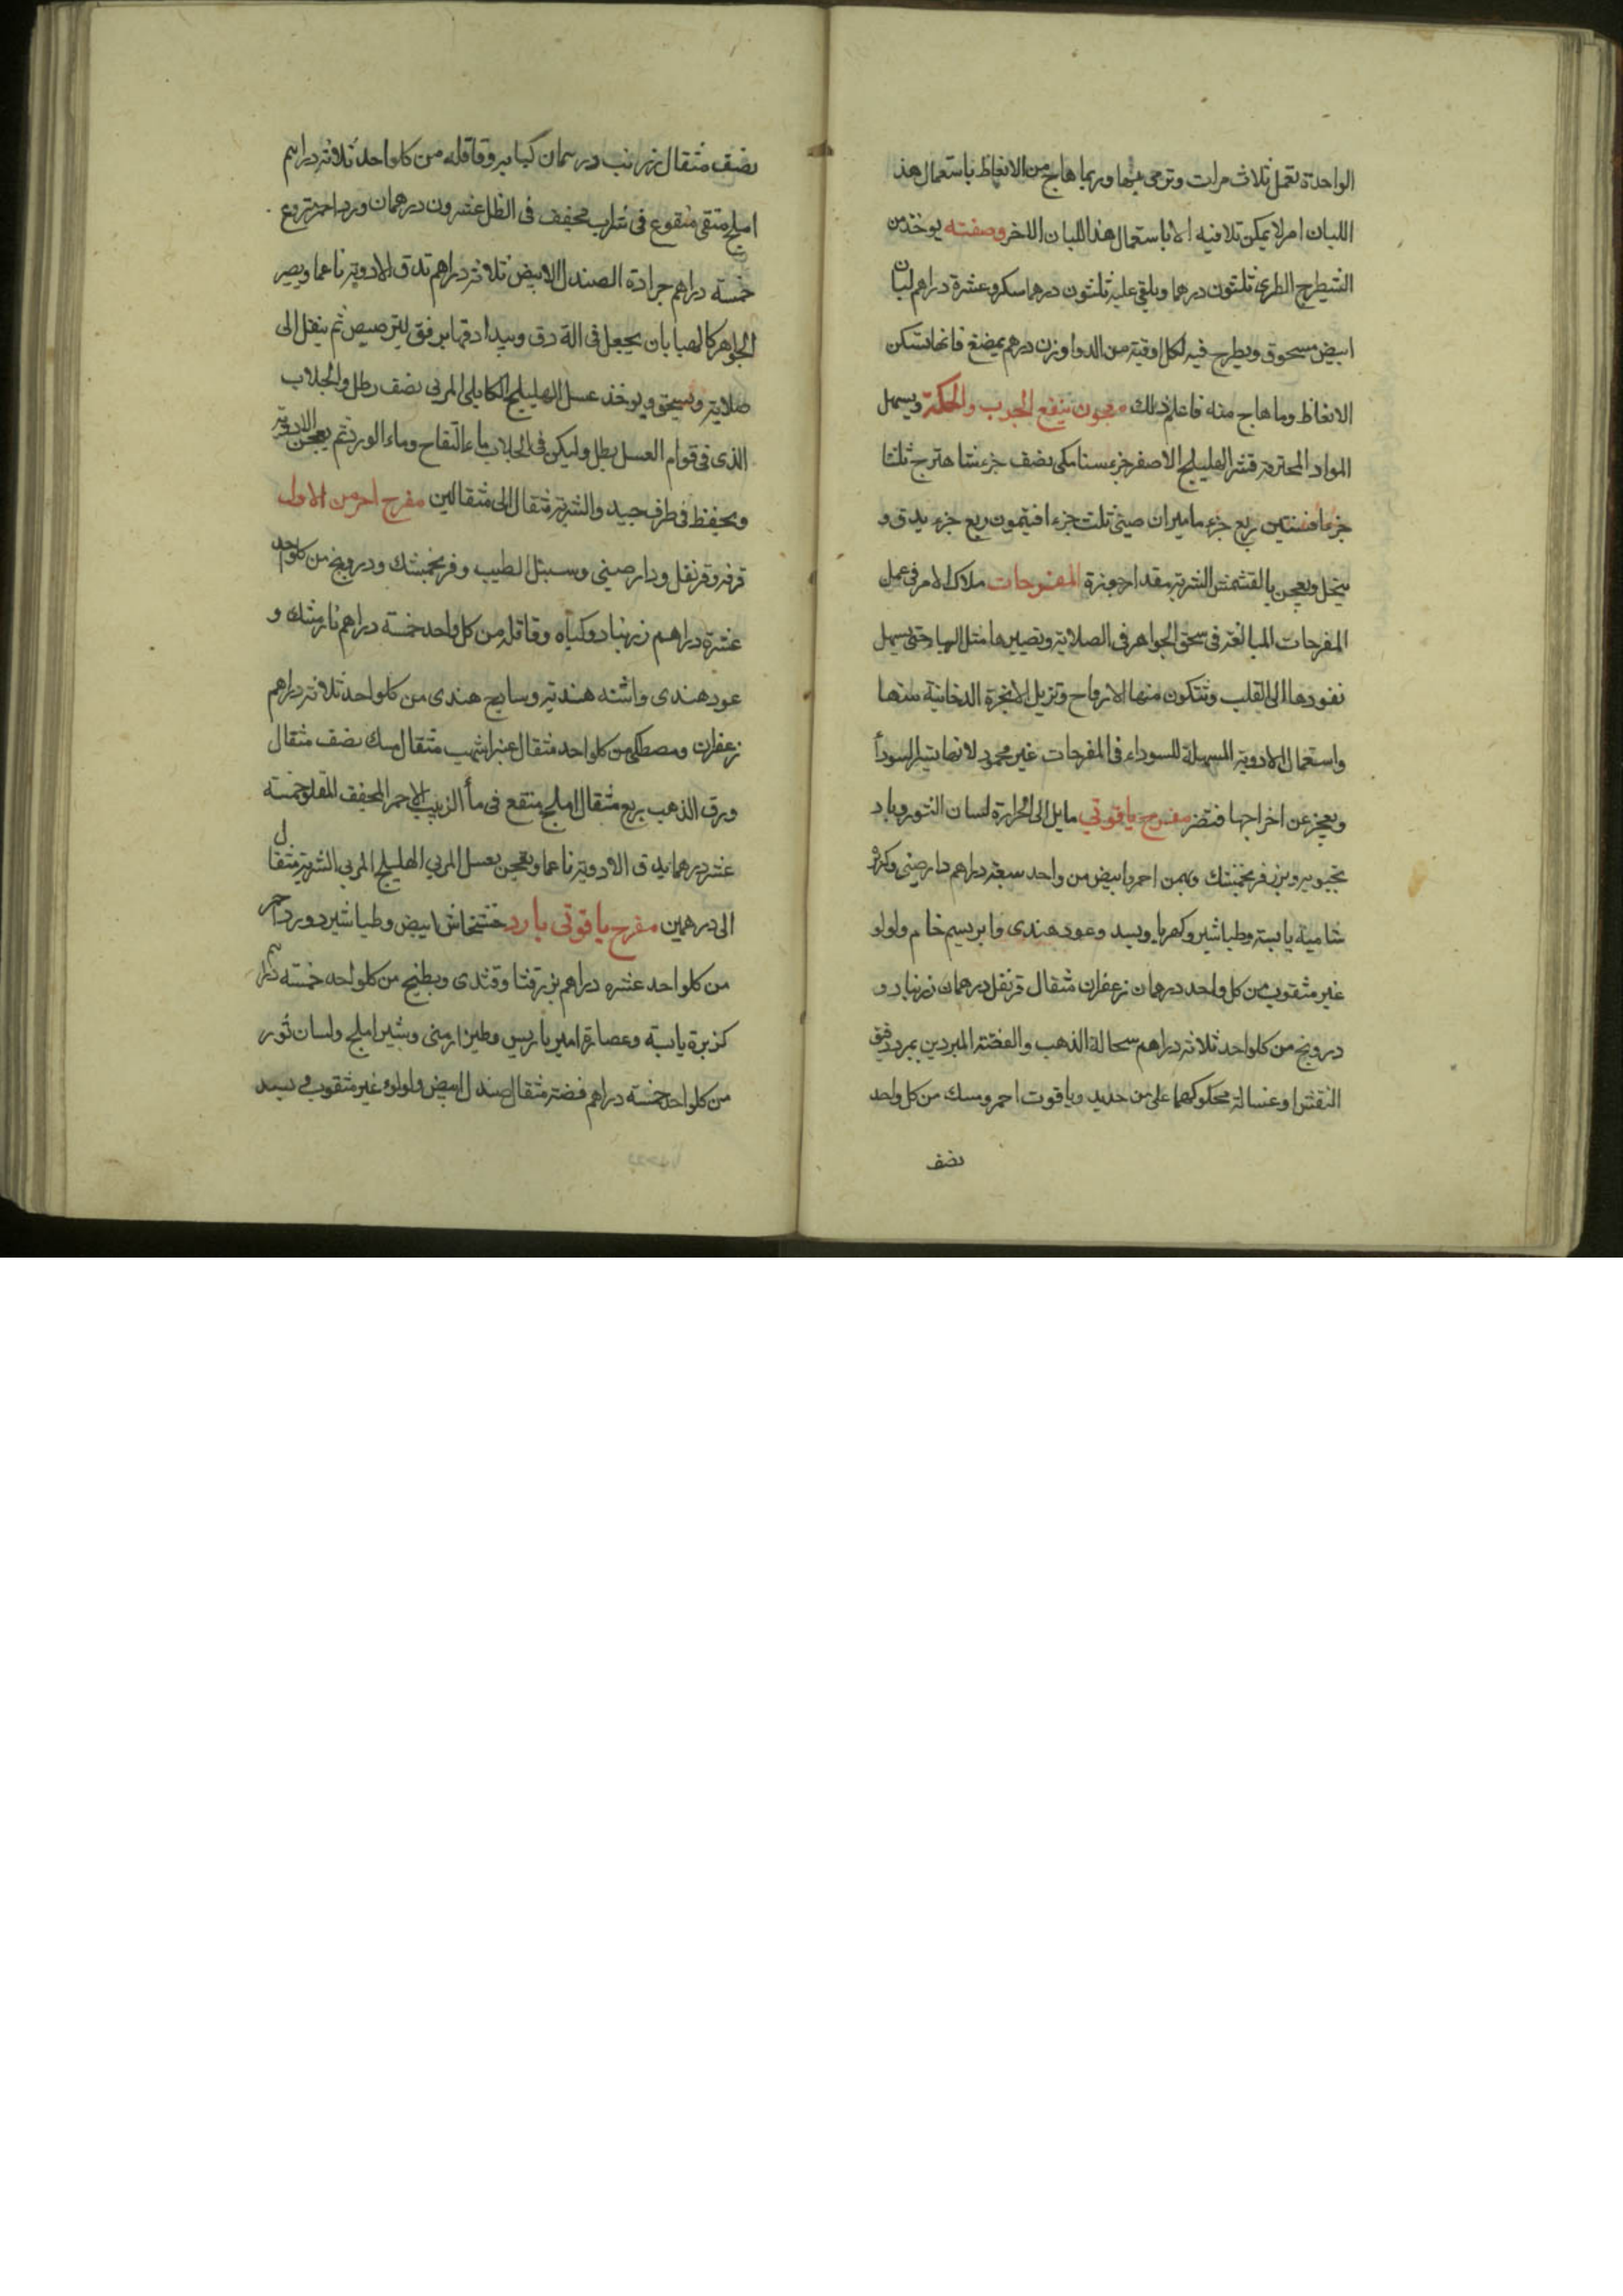 الواحدة تعمل ثلاث مرات وترمى بها وربما هاج من الانعاظ باستعمال هذ
اللبان امر لا يمكن تلافيه الا باستعمال هذا اللبان الاخر وصفته يوخذ من
الشيطرج الطرى ثلثون درهما ويلقى عليه ثلثون درهما سكر وعشرة دراهم لبان
ابيض مسحوق ويطرح فيه لكل اوقية من الدوا وزن درهم يمضغ فانها تسكن
الانعاظ وما هاج منه فاعلم ذلك معجون ينفع الجرب والحكة ويسهل
المواد المحترقة قشر الهليلج الاصفر جزء سنا مكى نصف جزء شاهترج ثلث
جزء افسنتين ربع جزء ماميران صينى ثلث جزء افتيمون ربع جزء يدق و
ينخل ويعجن بالقشمش الشربة مقدار جوزة المفرحات ملاك الامر فى عمل
المفرحات المبالغة فى سحق الجواهر فى الصلاية وتصييرها مثل الهبا حتى يسهل
نفودها الى القلب وتتكون منها الارواح وتزيل الابخرة الدخانية منها
واستعمال الادوية المسهلة للسوداء فى المفرحات غير محمود لانها تثير السودأ
ويعجز عن اخراجها فتضر مفرح ياقوتي مايل الى الحرارة لسان الثور وباد
نجبويه وبزر فرنجمشك وبهمن احمر وابيض من واحد سبعة دراهم دارصينى وكزبرة
شامية يابسة وطباشير وكهربا وبسد وعود هندى وابريسم خام ولولو
غير مثقوب من كل واحد درهمان زعفران مثقال قرنفل درهمان زرنباد و
درونج من كلواحد ثلاثة دراهم سحالة الذهب والفضة المبردين بمبرد دقيق
النقش او غسالة محكوكهما على من حديد وياقوت احمر ومسك من كل واحد
نصف
نصف مثقال زرنب درهمان كبابه وقاقله من كلواحد ثلاثة دراهم
املج منقى منقوع فى شراب مجفف فى الظل عشرون درهمان ورد احمر منزوع
خمسة دراهم جرادة الصندل الابيض ثلاثة دراهم تدق الادوية ناعما ويصير
الجواهر كالهبا بان يجعل فى الة دق ويبدا دقها برفق ليترصص ثم ينقل الى
صلاية ويسحق ويوخذ عسل الهليلج الكابلى المربى نصف رطل والجلاب
الذى فى قوام العسل رطل وليكن فى الجلاب ماء التفاح وماء الورد ثم يعجن الادوية
ويحفظ فى ظرف جيد والشربة مثقال الى مثقالين مفرح احر من الاول
قرفه وقرنفل ودارصيني وسنبل الطيب وفرنجمشك ودرونج من كلواحد
عشرة دراهم زرنباد وكبابه وقاقله من كل واحد خمسة دراهم نارمشك و
عود هندى واشنه هنديه وساذج هندى من كلواحد ثلاثة دراهم
زعفران ومصطكى من كلواحد مثقال عنبر اشهب مثقال مسك نصف مثقال
ورق الذهب ربع مثقال املج منقع فى مأ الزبيب الاحمر المجفف المقلو خمسة
عشر درهما يدق الادوية ناعما ويعجن بعسل المربى الهليلج المربى الشربة مثقال
الى درهمين مفرح ياقوتى بارد خشخاش ابيض وطباشير وورد احمر
من كلواحد عشره دراهم بزر قثا وقثدى وبطيخ من كلواحد خمسة دراهم
كزبرة يابسة وعصارة امير باريس وطين ارمنى وشير املج ولسان ثور
من كلواحد خمسة دراهم فضة مثقال صندل ابيض ولولوء غير مثقوب وبسد